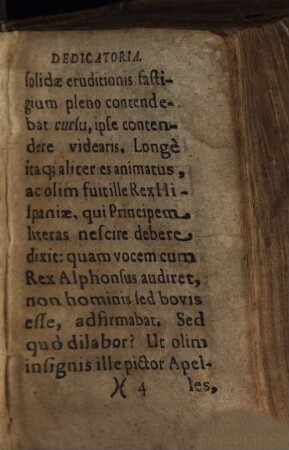 DEDICATORIA.
ſolidæ eruditionis faſti-
gium pleno contende-
bat curſu, ipſe conten-
dere videaris. Longè
itaq; aliter es animatus,
ac olim fuit ille Rex Hi-
ſpaniæ, qui Principem
literas neſcire debere
dixit: quam vocem cum
Rex Alphonſus audiret,
non hominis ſed bovis
eſſe, adfirmabat. Sed
quò dilabor? Ut olim
inſignis ille pictor Apel-
)( 4 les,